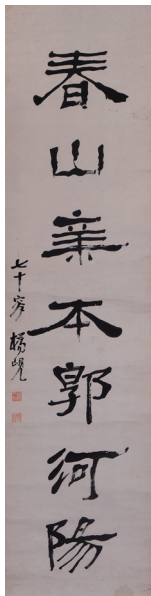 春山本郭河陽
七十叟楊峴